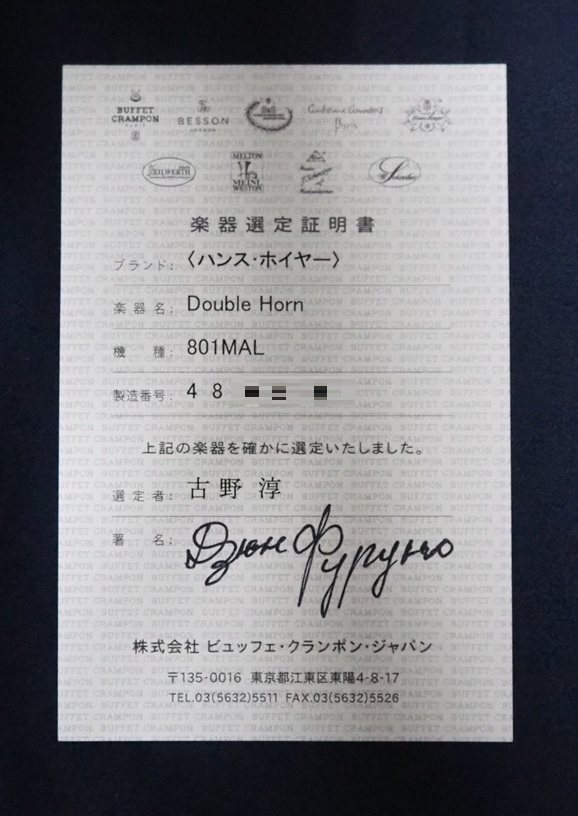 BUFFET
CRAMPON
PARIS
BESSON
LONDON
Antoine Courtois
Paris
Hans Hoyer
KEILWERTH
MELTON
MEINL
WESTON
W. Schreiber
楽器選定証明書
ブランド: 〈ハンス・ホイヤー〉
楽器名: Double Horn
機種: 801MAL
製造番号: 4 8
上記の楽器を確かに選定いたしました。
選定者: 古野 淳
署名: Дзюн Фуруно
株式会社 ビュッフェ・クランポン・ジャパン
〒135-0016 東京都江東区東陽4-8-17
TEL.03(5632)5511 FAX.03(5632)5526